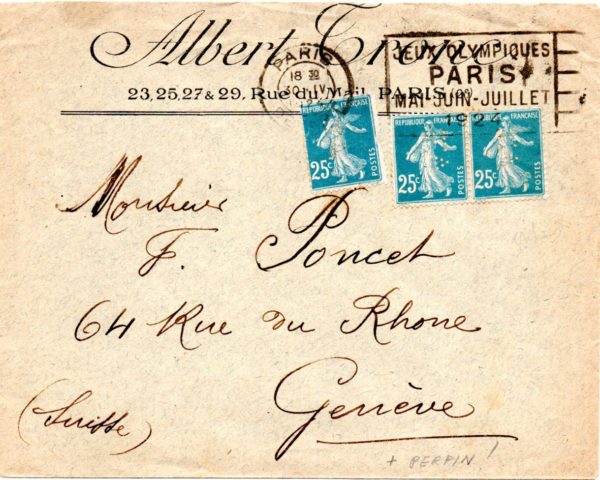 Albert
23, 25, 27 & 29, Rue du Mail, PARIS
PARIS
18 30
30 IV
JEUX OLYMPIQUES
PARIS
MAI-JUIN-JUILLET
1924
REPUBLIQUE FRANÇAISE
25c POSTES
REPUBLIQUE FRANÇAISE
25c POSTES
REPUBLIQUE FRANÇAISE
25c POSTES
Monsieur
F. Poncet
64 Rue du Rhone
Genève
(Suisse)
+ PERFIN!